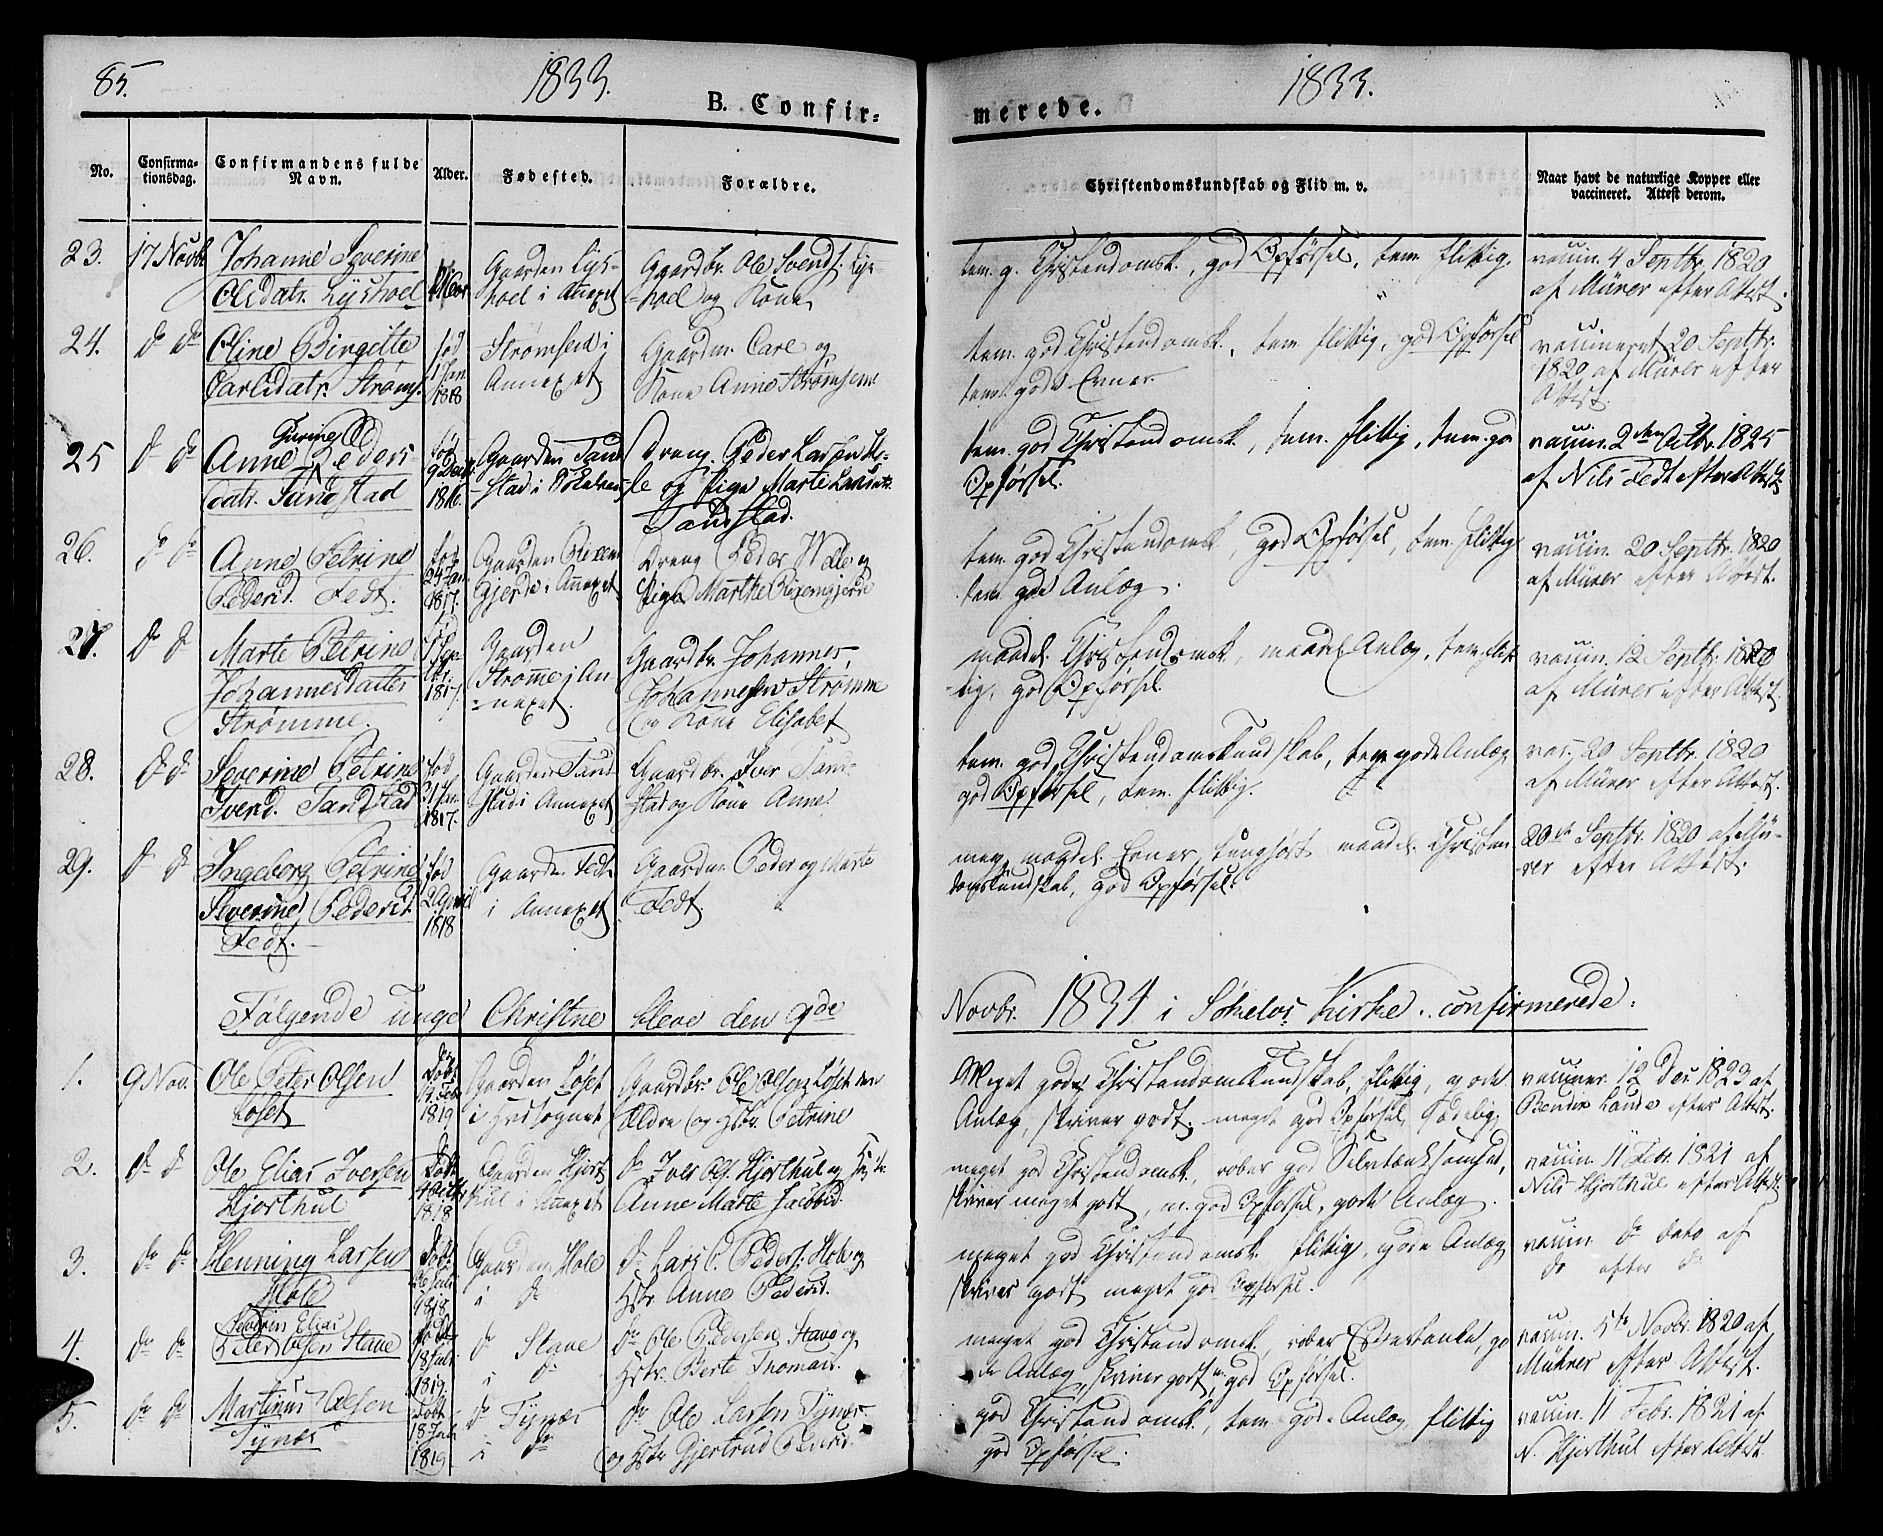 85.
1833.
B. Confir-
1833.
merede.
No.
Confirma-
tionsdag.
Confirmandens fulde
Navn.
Alder.
Fødested.
Forældre.
Christendomskundskab og Flid m. v.
Naar havt de naturlige Kopper eller
vaccineret. Attest derom.
23. 17 Novbr Johanne Severine
Olsdatr. Lyshoel
Gaarden Lys-
hoel i Annexet
Gaardbr. Ole Svends. Lys-
-hoel og Kone
tem. g. Christendomsk., god Opførsel, tem. flittig.
vaccin. 4 Septbr. 1820
af Mürer efter Attest.
24. do do Oline Birgitte
Carlsdatr. Strøms.
fød
1 Jan
1818
Strømsend i
Annexet
Gaardm. Carl og
Kone Anne Strømsend
tem. god Christendomsk., tem. flittig, god Opførsel
tem. gode Evner.
vaccineret 20 Septbr.
1820 af Mürer efter
Attest.
25 do do Anne Gurine Peders
datr. Tandstad
fød
1816.
Gaarden Tand
-stad i
Dreng Peder Larsen
og Pige Marte
Tandstad.
tem. god Christendomsk., tem. flittig, tem. god
Opførsel.
vaccin. 2den Octbr. 1825
af Nils Fedt efter Attest
26. do do Anne Petrine
Pedersd. Fedt.
fød
24 Jan.
1817.
Gaarden Rixen
Gjerde i Annexet
Dreng Peder og
Pige Marthe Rixengjerde
tem. god Christendomsk., god Opførsel, tem. flittig
tem. gode Anlæg.
vaccin. 20 Septbr. 1820
af Mürer efter Attest.
27. do do Marte Petrine
Johannesdatter
Strømme.
Sep
1817.
Gaarden
Strømme i An
-nexet.
Gaardbr. Johannes
Johannesen Strømme
og Kone Elisabet
maadel. Christendomsk., maadel. Anlæg, tem. flit
-tig, god Opførsel.
vaccin. 12 Septbr. 1820
af Mürer efter Attest.
28. do do Severine Petrine
Iversd. Tandstad
fød
31 Jan.
1817.
Gaarden Tand
stad i Annexet
Gaardbr. Iver Tand-
stad og Kone Anne.
tem. god Christendomskundskab, tem. gode Anlæg
god Opførsel, tem. flittig.
vac. 20 Septbr. 1820
af Mürer efter Attest.
29. do do Ingeborg Petrine
Severine Pedersd.
Fedt.
fød
2 April
1818
Gaarden Fedt
i Annexet
Gaardm. Peder og Marte
Fedt.
meg. maadel. Evner, tunghørt maadel. Christen
domskundskab, god Opførsel.
20de Septbr. 1820 af Mü-
rer efter Attest.
Følgende unge Christne bleve den 9de
Novbr. 1834 i Kirke confirmerede:
1. 9 Nov. Ole Peter Olsen
Løset
født
14 Febr
1819
Gaarden Løset
i Hvdsognet
Gaardbr. Ole Olsen Løset den
Ældre og Hstr. Petrine
Meget god Christendomskundskab, flittig, gode
Anlæg, skriver godt, meget god Opførsel, sædelig.
vacciner. 12 Dec 1823 af
Bendix Lande efter Attest.
2. do do Ole Elias Iversen
Hjorthul
født
1818
Gaarden Hjort
hul i Annexet
do Iver Ols. Hjorthul og Hstr.
Anne Marte Jacobsd.
meget god Christendomsk., røber god Selvtænksomhed,
skriver meget godt, m. god Opførsel, gode Anlæg.
vaccin. 11 Febr. 1821 af
Nils Hjorthul efter Attest
3. do do Henning Larsen
Hole
født
26 Juli
1818.
Gaarden Hole
i do
do Lars Peders. Hole og
Hstr Anne Pedersd.
meget god Christendomsk. flittig, gode Anlæg
skriver godt meget god Opførsel.
vaccin. do dato af
do efter do
4. do do Severin Elias
Peter Olsen Stave
født
1819.
do Stave
i do
do Ole Pedersen Stave og
Hstr. Berte Thomasd.
meget god Christendomsk., røber Eftertanke, go
de Anlæg, skriver godt, m. god Opførsel.
vaccin. 5te Novbr. 1820 af
Mührer efter Attest.
5. do do Martinus Olsen
Tynes
født
18 Jan
1819
do Tynes
i do
do Ole Larsen Tynes
og Hstr Gjertrud Pedersd.
god Christendomsk., tem. gode Anlæg, flittig
god Opførsel.
vaccin. 11 Febr. 1821 af
N. Hjorthul efter Attest